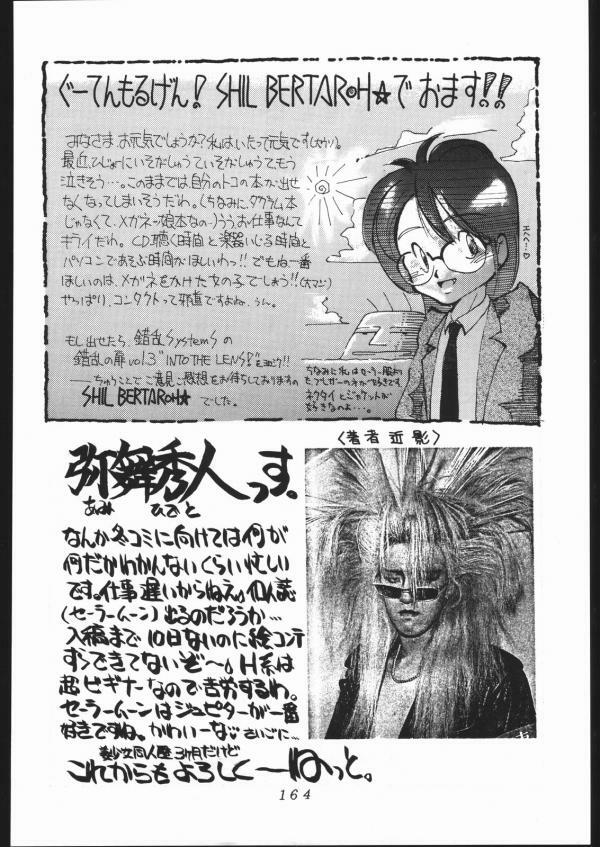 ぐーてんもるげん! SHIL BERTAROH☆でおます!!
みなさまお元気でしょうか?私はいたって元気です(大ウソ)。
最近ひじょーにいそがしゅうていそがしゅうて、もう
泣きそう…。このままでは自分のトコの本が出せ
なくなってしまいそうだわ。(ちなみに、タカラヅカ本
じゃなくて、メガネっ娘本なの…)うう、お仕事なんて
キライだわ。CD聴く時間と楽器いじる時間と
パソコンであそぶ時間がほしいわっ!!でもね一番
ほしいのは、メガネをかけた女の子でしょう!!(大マジ)
やっぱり、コンタクトって邪道ですよねっ、うん。
エヘヘ…♡
もし出せたら、錯乱SystemSの
錯乱の扉 vol.3 "INTO THE LENS"をヨロシク!!
――ちゅうことでご意見ご感想をお待ちしておりますの
SHIL BERTAROH☆でした。
ちなみに私はセーラー服より
もブレザーの方が好きです
ネクタイとジャケットが
好きなのよ…。
弥舞秀人っす。
あみ ひでと
<著者近影>
なんか冬コミに向けては何が
何だかわかんないくらい忙しい
です。仕事遅いからねえ。個人誌
(セーラームーン)出るのだろうか…
入稿まで10日ないのに絵コンテ
すらできてないぞ~。H系は
超ビギナーなので苦労するわ。
セーラームーンはジュピターが一番
好きですね。かわいーな。さいごに…
美少女同人歴3ヶ月だけど
これからもよろしく~ねっと。
164